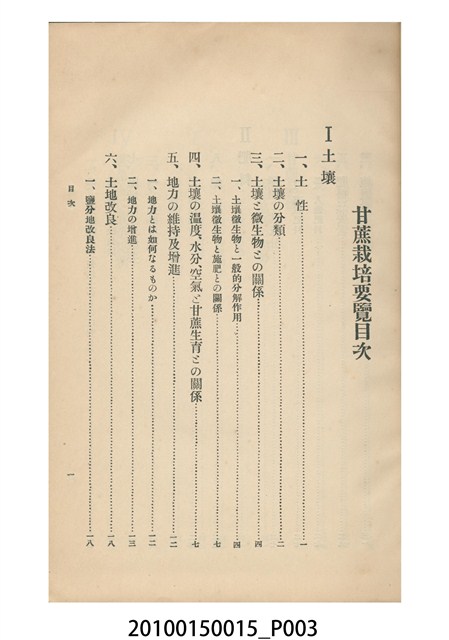 甘蔗栽培要覽目次
I 土壤
一、土性……一
二、土壤の分類……二
三、土壤と微生物との關係……四
一、土壤微生物と一般的分解作用……四
二、土壤微生物と施肥との關係……七
四、土壤の溫度、水分、空氣と甘蔗生育との關係……七
五、地力の維持及增進……一二
一、地力とは如何なるものか……一二
二、地力の增進……一三
六、土地改良……一八
一、鹽分地改良法……一八
目次
一
20100150015_P003